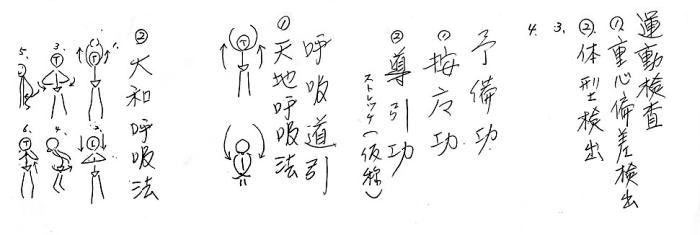 運動検査
① 重心偏差検出
② 体型検出
3.
4.
予備功
① 按広功
② 導引功
ストレッチ(仮称)
呼吸道引
① 天地呼吸法
② 大和呼吸法
1.
2.
3.
4.
5.
6.